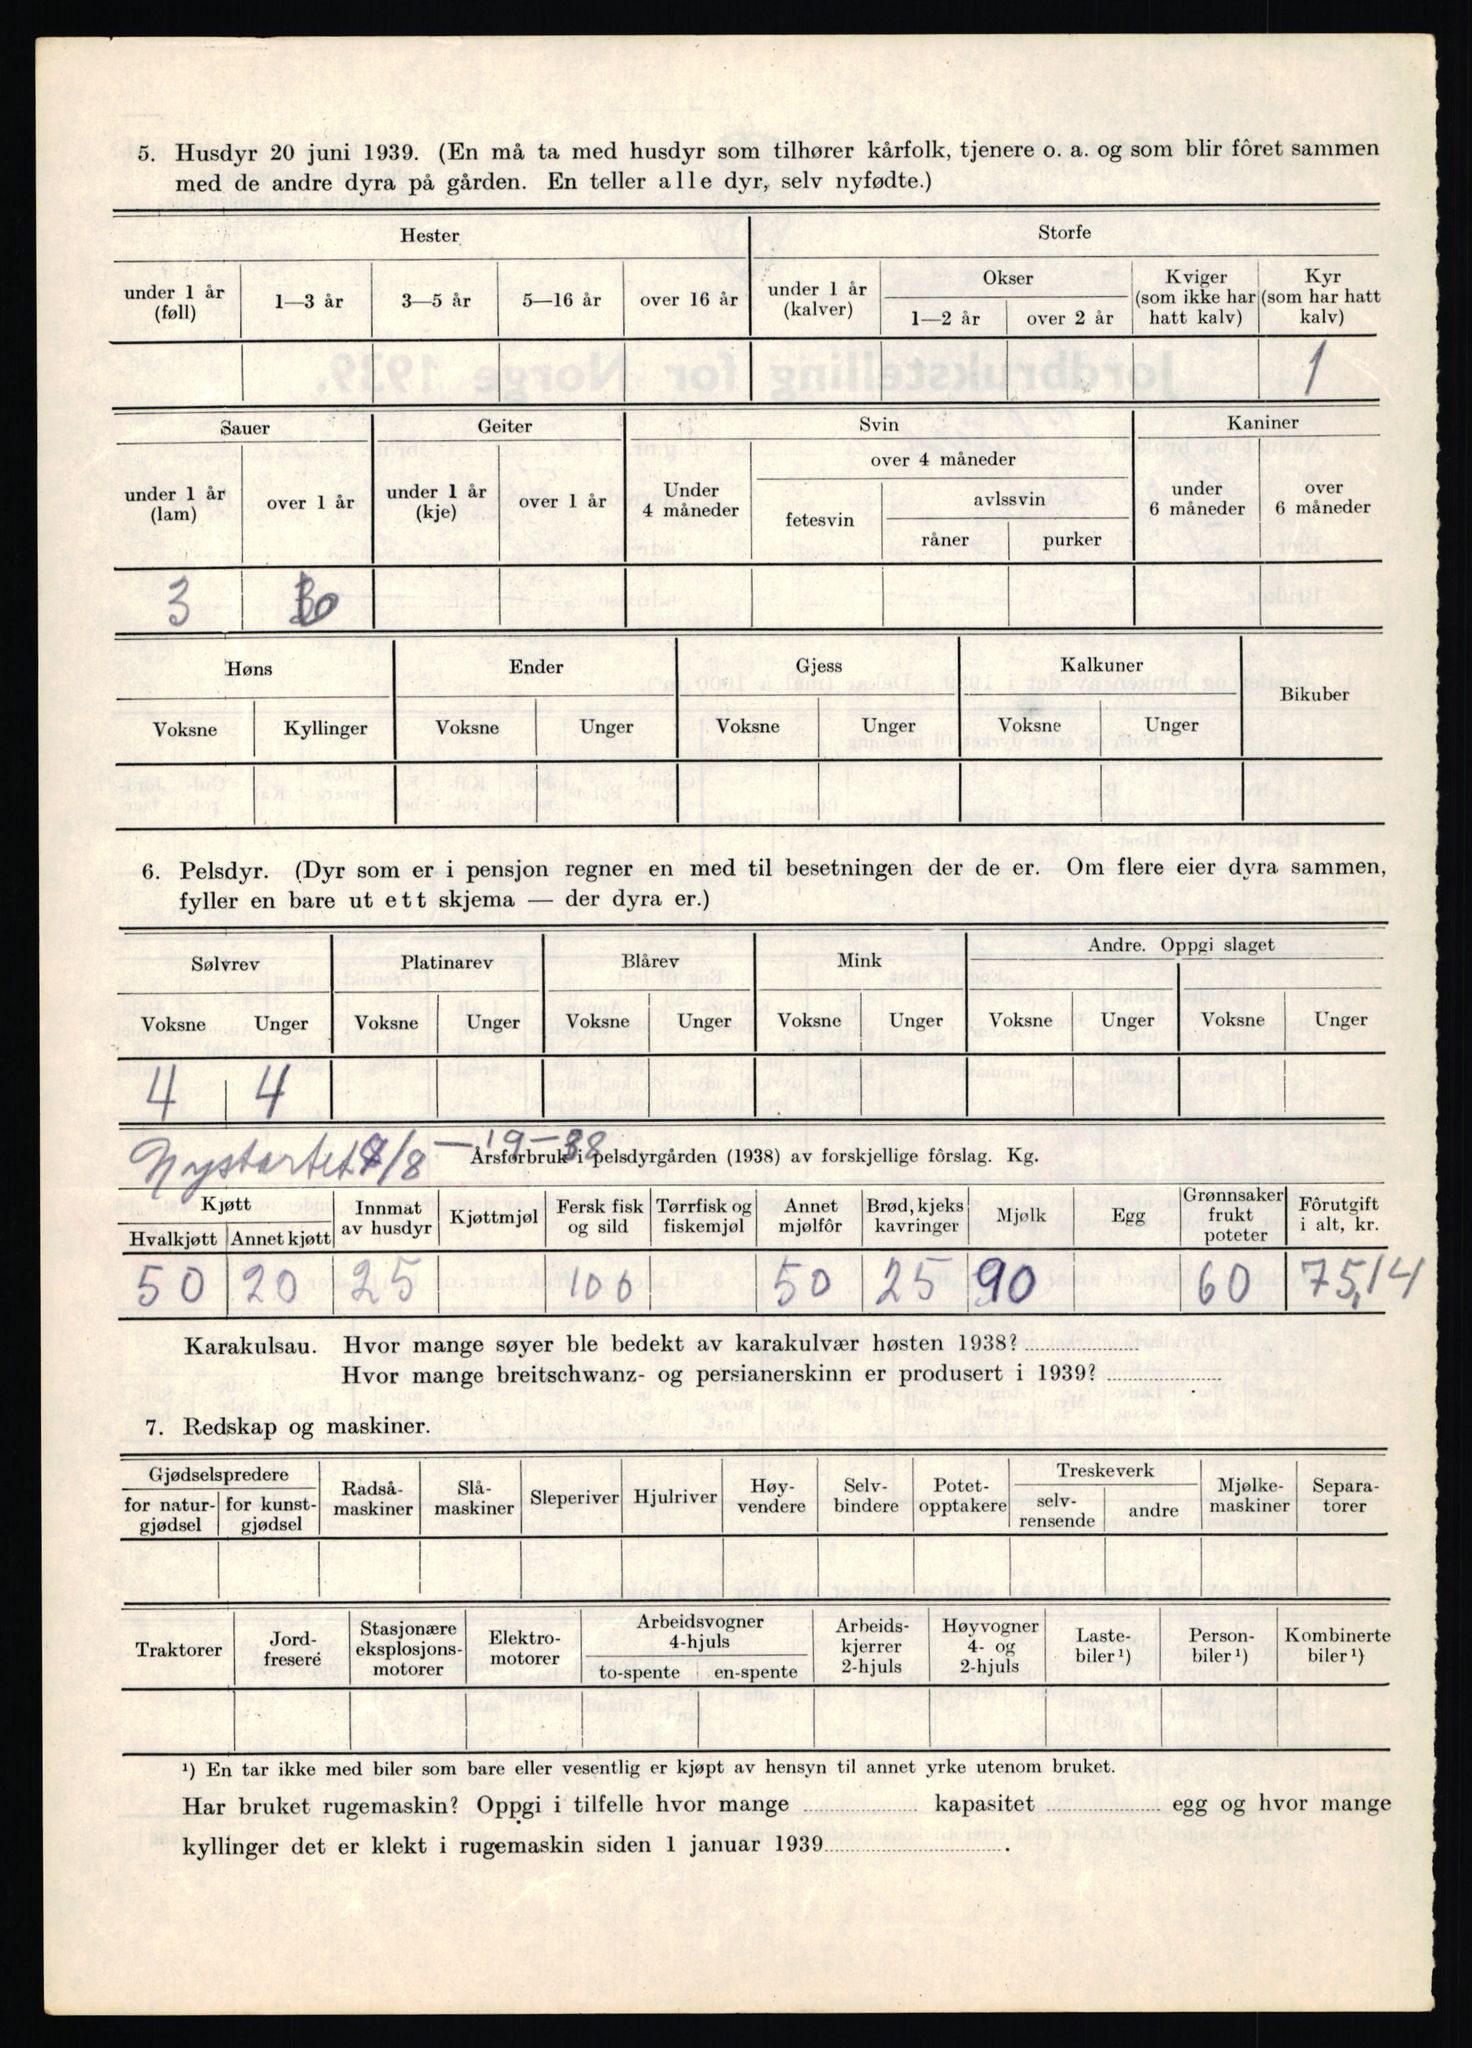 5. Husdyr 20 juni 1939. (En må ta med husdyr som tilhører kårfolk, tjenere o. a. og som blir fôret sammen
med de andre dyra på gården. En teller alle dyr, selv nyfødte.)
Hester Storfe
under 1 år (føll) 1—3 år 3—5 år 5—16 år over 16 år under 1 år (kalver) Okser 1—2 år over 2 år Kviger (som ikke har hatt kalv) Kyr (som har hatt kalv)
1
Sauer Geiter Svin Kaniner
under 1 år (lam) over 1 år under 1 år (kje) over 1 år Under 4 måneder over 4 måneder fetesvin avlssvin råner purker under 6 måneder over 6 måneder
3
Høns Ender Gjess Kalkuner Bikuber
Voksne Kyllinger Voksne Unger Voksne Unger Voksne Unger
6. Pelsdyr. (Dyr som er i pensjon regner en med til besetningen der de er. Om flere eier dyra sammen,
fyller en bare ut ett skjema — der dyra er.)
Sølvrev Platinarev Blårev Mink Andre. Oppgi slaget
Voksne Unger Voksne Unger Voksne Unger Voksne Unger Voksne Unger Voksne Unger
4 4
Nystartet /8 — 19 — 38
Årsforbruk i pelsdyrgården (1938) av forskjellige fôrslag. Kg.
Kjøtt Hvalkjøtt Annet kjøtt Innmat av husdyr Kjøttmjøl Fersk fisk og sild Tørrfisk og fiskemjøl Annet mjølfôr Brød, kjeks kavringer Mjølk Egg Grønnsaker frukt poteter Fôrutgift i alt, kr.
50 20 25 100 50 25 90 60 75,14
Karakulsau. Hvor mange søyer ble bedekt av karakulvær høsten 1938?
Hvor mange breitschwanz- og persianerskinn er produsert i 1939?
7. Redskap og maskiner.
Gjødselspredere for naturgjødsel for kunstgjødsel Radsåmaskiner Slåmaskiner Sleperiver Hjulriver Høyvendere Selvbindere Potetopptakere Treskeverk selvrensende andre Mjølkemaskiner Separatorer
Traktorer Jordfresere Stasjonære eksplosjonsmotorer Elektromotorer Arbeidsvogner 4-hjuls to-spente en-spente Arbeidskjerrer 2-hjuls Høyvogner 4- og 2-hjuls Lastebiler ¹) Personbiler ¹) Kombinerte biler ¹)
¹) En tar ikke med biler som bare eller vesentlig er kjøpt av hensyn til annet yrke utenom bruket.
Har bruket rugemaskin? Oppgi i tilfelle hvor mange kapasitet egg og hvor mange
kyllinger det er klekt i rugemaskin siden 1 januar 1939 .